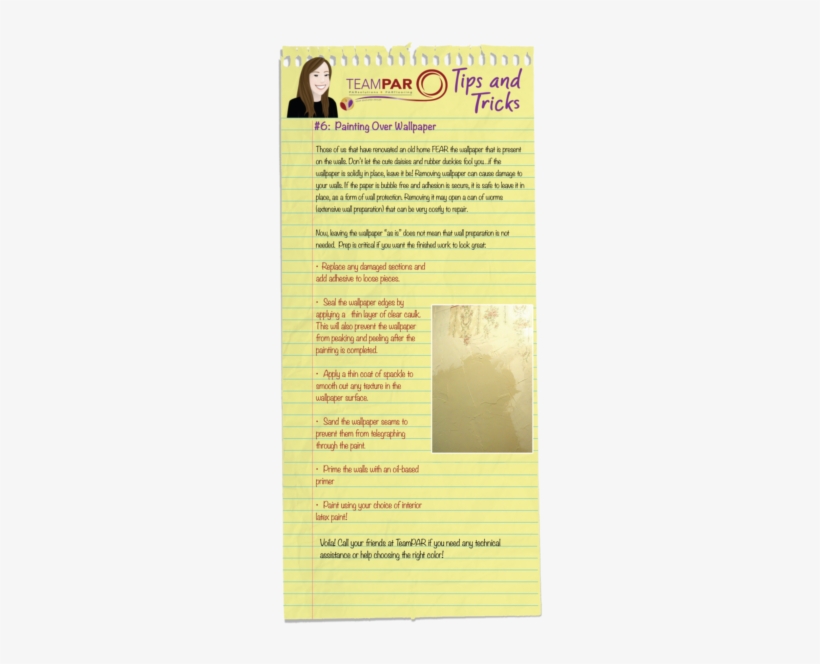 TEAMPAR
Tips and
Tricks
#6: Painting Over Wallpaper
Those of us that have renovated an old home FEAR the wallpaper that is present
on the walls. Don't let the cute daisies and rubber duckies fool you...if the
wallpaper is solidly in place, leave it be! Removing wallpaper can cause damage to
your walls. If the paper is bubble free and adhesion is secure, it is safe to leave it in
place, as a form of wall protection. Removing it may open a can of worms
(extensive wall preparation) that can be very costly to repair.
Now, leaving the wallpaper "as is" does not mean that wall preparation is not
needed. Prep is critical if you want the finished work to look great:
• Replace any damaged sections and
add adhesive to loose pieces.
• Seal the wallpaper edges by
applying a thin layer of clear caulk.
This will also prevent the wallpaper
from peaking and peeling after the
painting is completed.
• Apply a thin coat of spackle to
smooth out any texture in the
wallpaper surface.
• Sand the wallpaper seams to
prevent them from telegraphing
through the paint
• Prime the walls with an oil-based
primer
• Paint using your choice of interior
latex paint!
Voila! Call your friends at TeamPAR if you need any technical
assistance or help choosing the right color!